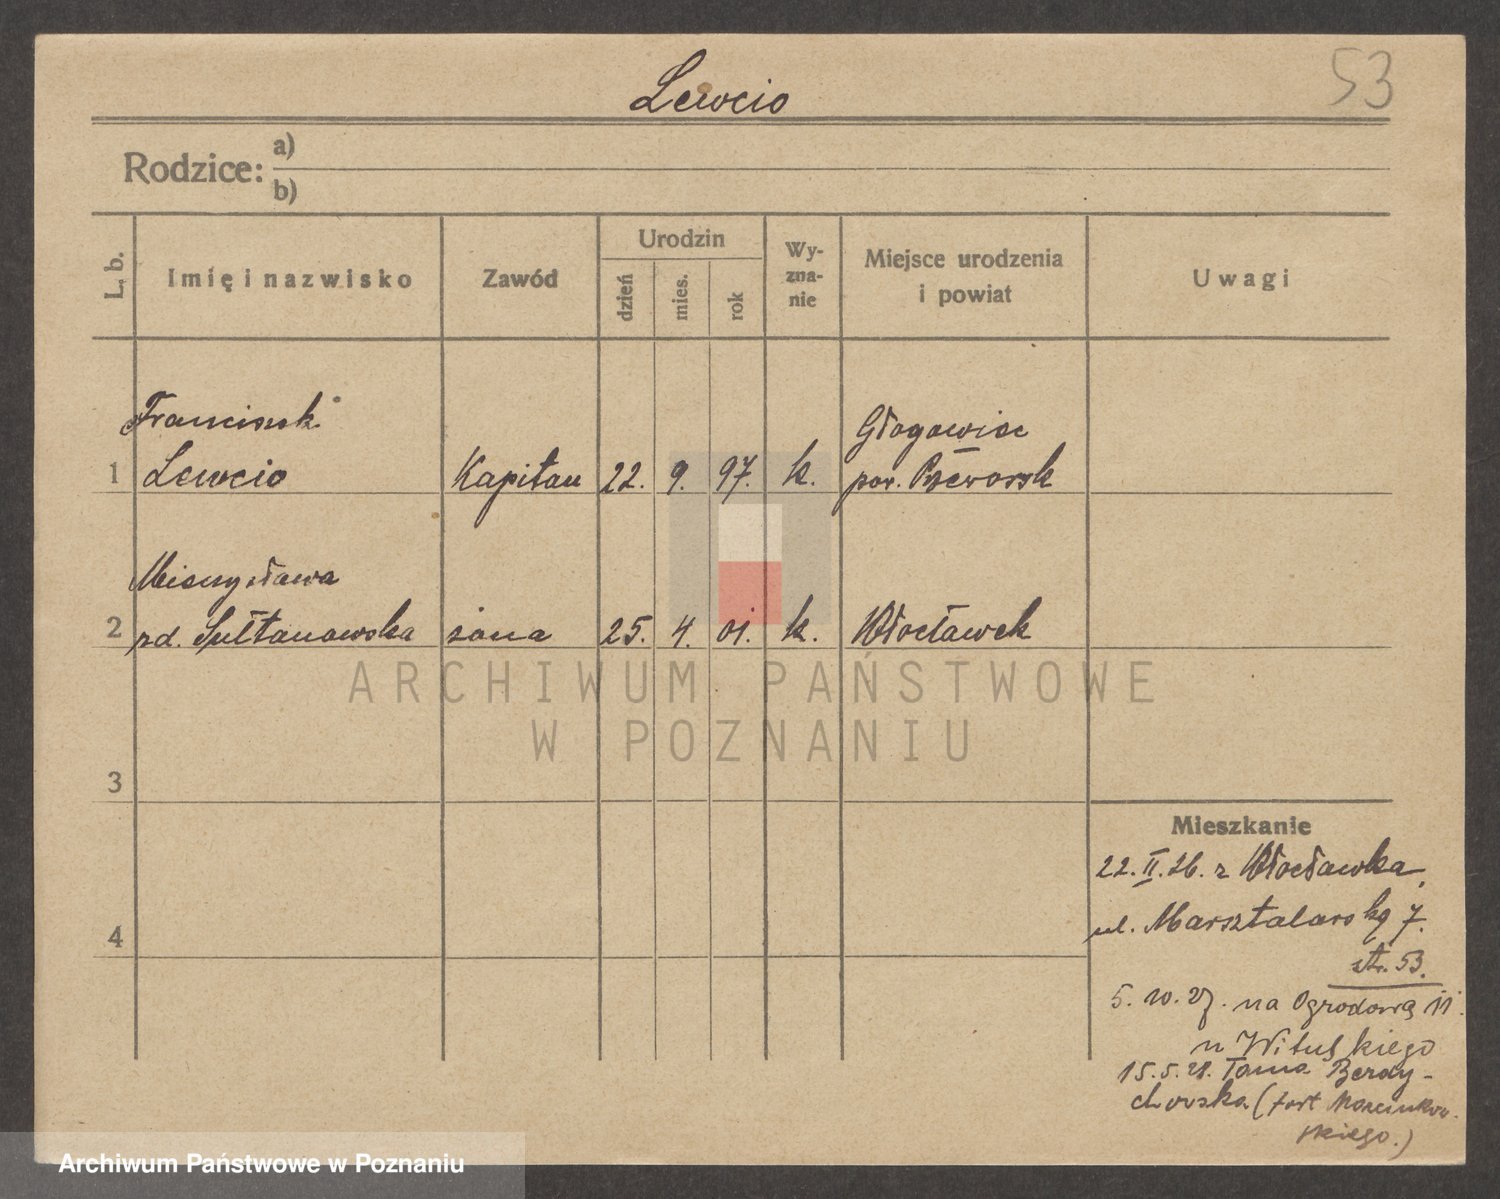 Lewcio
53
Rodzice: a)
b)
L. b.
Imię i nazwisko
Zawód
Urodzin
dzień
mies.
rok
Wy-
zna-
nie
Miejsce urodzenia
i powiat
Uwagi
Franciszek
Głogowiec
1 Lewcio Kapitan 22. 9. 97. k. pow. Przeworsk
Mieczysława
2 zd. Sułtanowska żona 25. 4. 01. k. Włocławek
ARCHIWUM PAŃSTWOWE
W POZNANIU
3
Mieszkanie
22.II.26. z Włocławka,
ul. Marsztalarską 7.
str. 53.
4
5. 10. 27. na Ogrodową 11.
u Wituskiego
15.5.28. Tama Berdy-
chowska (fort Marcinkow-
skiego.)
Archiwum Państwowe w Poznaniu